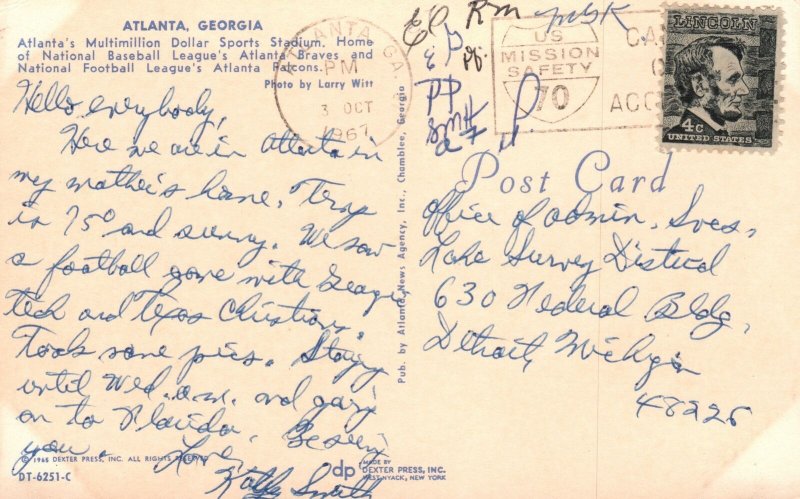 ATLANTA, GEORGIA
Atlanta's Multimillion Dollar Sports Stadium. Home
of National Baseball League's Atlanta Braves and
National Football League's Atlanta Falcons.
Photo by Larry Witt
Hello everybody,
Here we are in Atlanta in
my mother's home. Temp
is 75° and sunny. We saw
a football game with Georgia
Tech and Texas Christian.
Took some pics. Staying
until Wed. a.m. and going
on to Florida. Be seeing
you. Love,
Kathy Smith
© 1965 DEXTER PRESS, INC. ALL RIGHTS RESERVED
DT-6251-C
Pub. by Atlanta News Agency, Inc., Chamblee, Georgia
dp MADE BY
DEXTER PRESS, INC.
WEST NYACK, NEW YORK
ATLANTA, GA.
PM
3 OCT
1967
US
MISSION
SAFETY
70
CA
ACC
LINCOLN
4c
UNITED STATES
RM
Post Card
Office of Admin. Svcs.
Lake Survey District
630 Federal Bldg.
Detroit, Michigan
48226